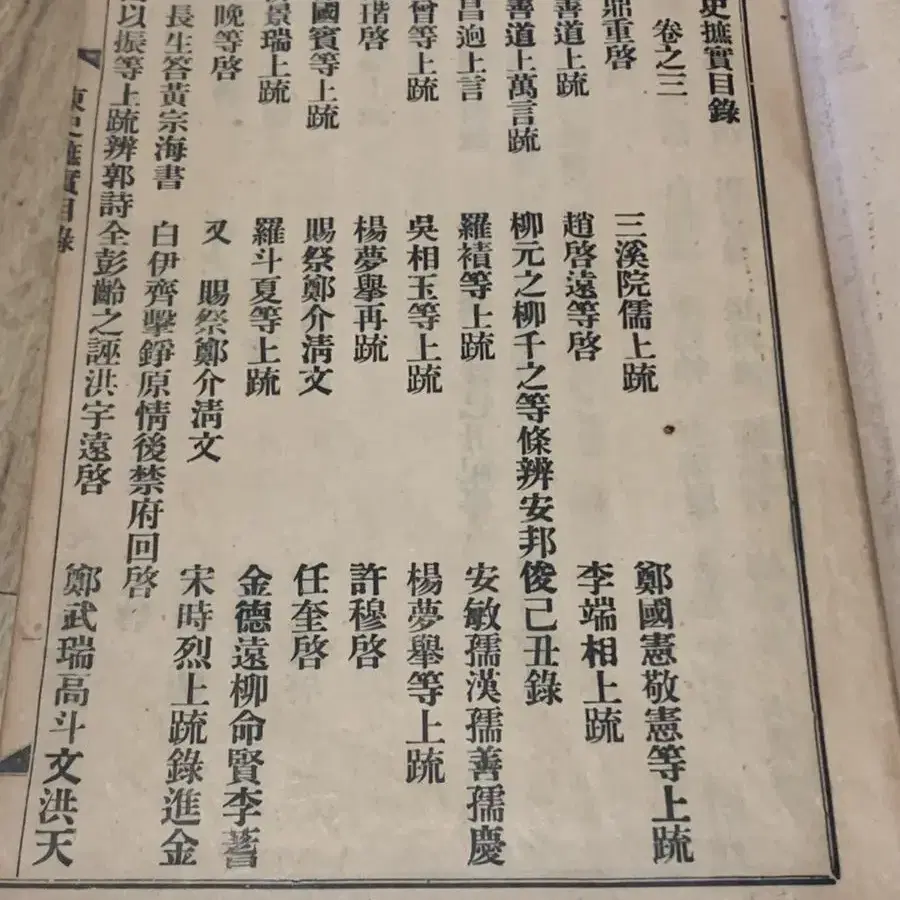 史摭實目錄
卷之三
鼎重啓 三溪院儒上疏 鄭國憲敬憲等上疏
善道上疏 趙啓遠等啓 李端相上疏
善道上萬言疏 柳元之柳千之等條辨安邦俊己丑錄
昌逈上言 羅襀等上疏 安敏孺漢孺善孺慶
曾等上疏 吳相玉等上疏 楊夢擧等上疏
瑎啓 楊夢擧再疏 許穆啓
國賓等上疏 賜祭鄭介淸文 任奎啓
景瑞上疏 羅斗夏等上疏 金德遠柳命賢李蓍
晚等啓 又 賜祭鄭介淸文 宋時烈上疏錄進金
長生答黃宗海書 白伊齊擊錚原情後禁府回啓
以振等上疏辨郭詩全彭齡之誣洪宇遠啓 鄭武瑞高斗文洪天
東史摭實目錄